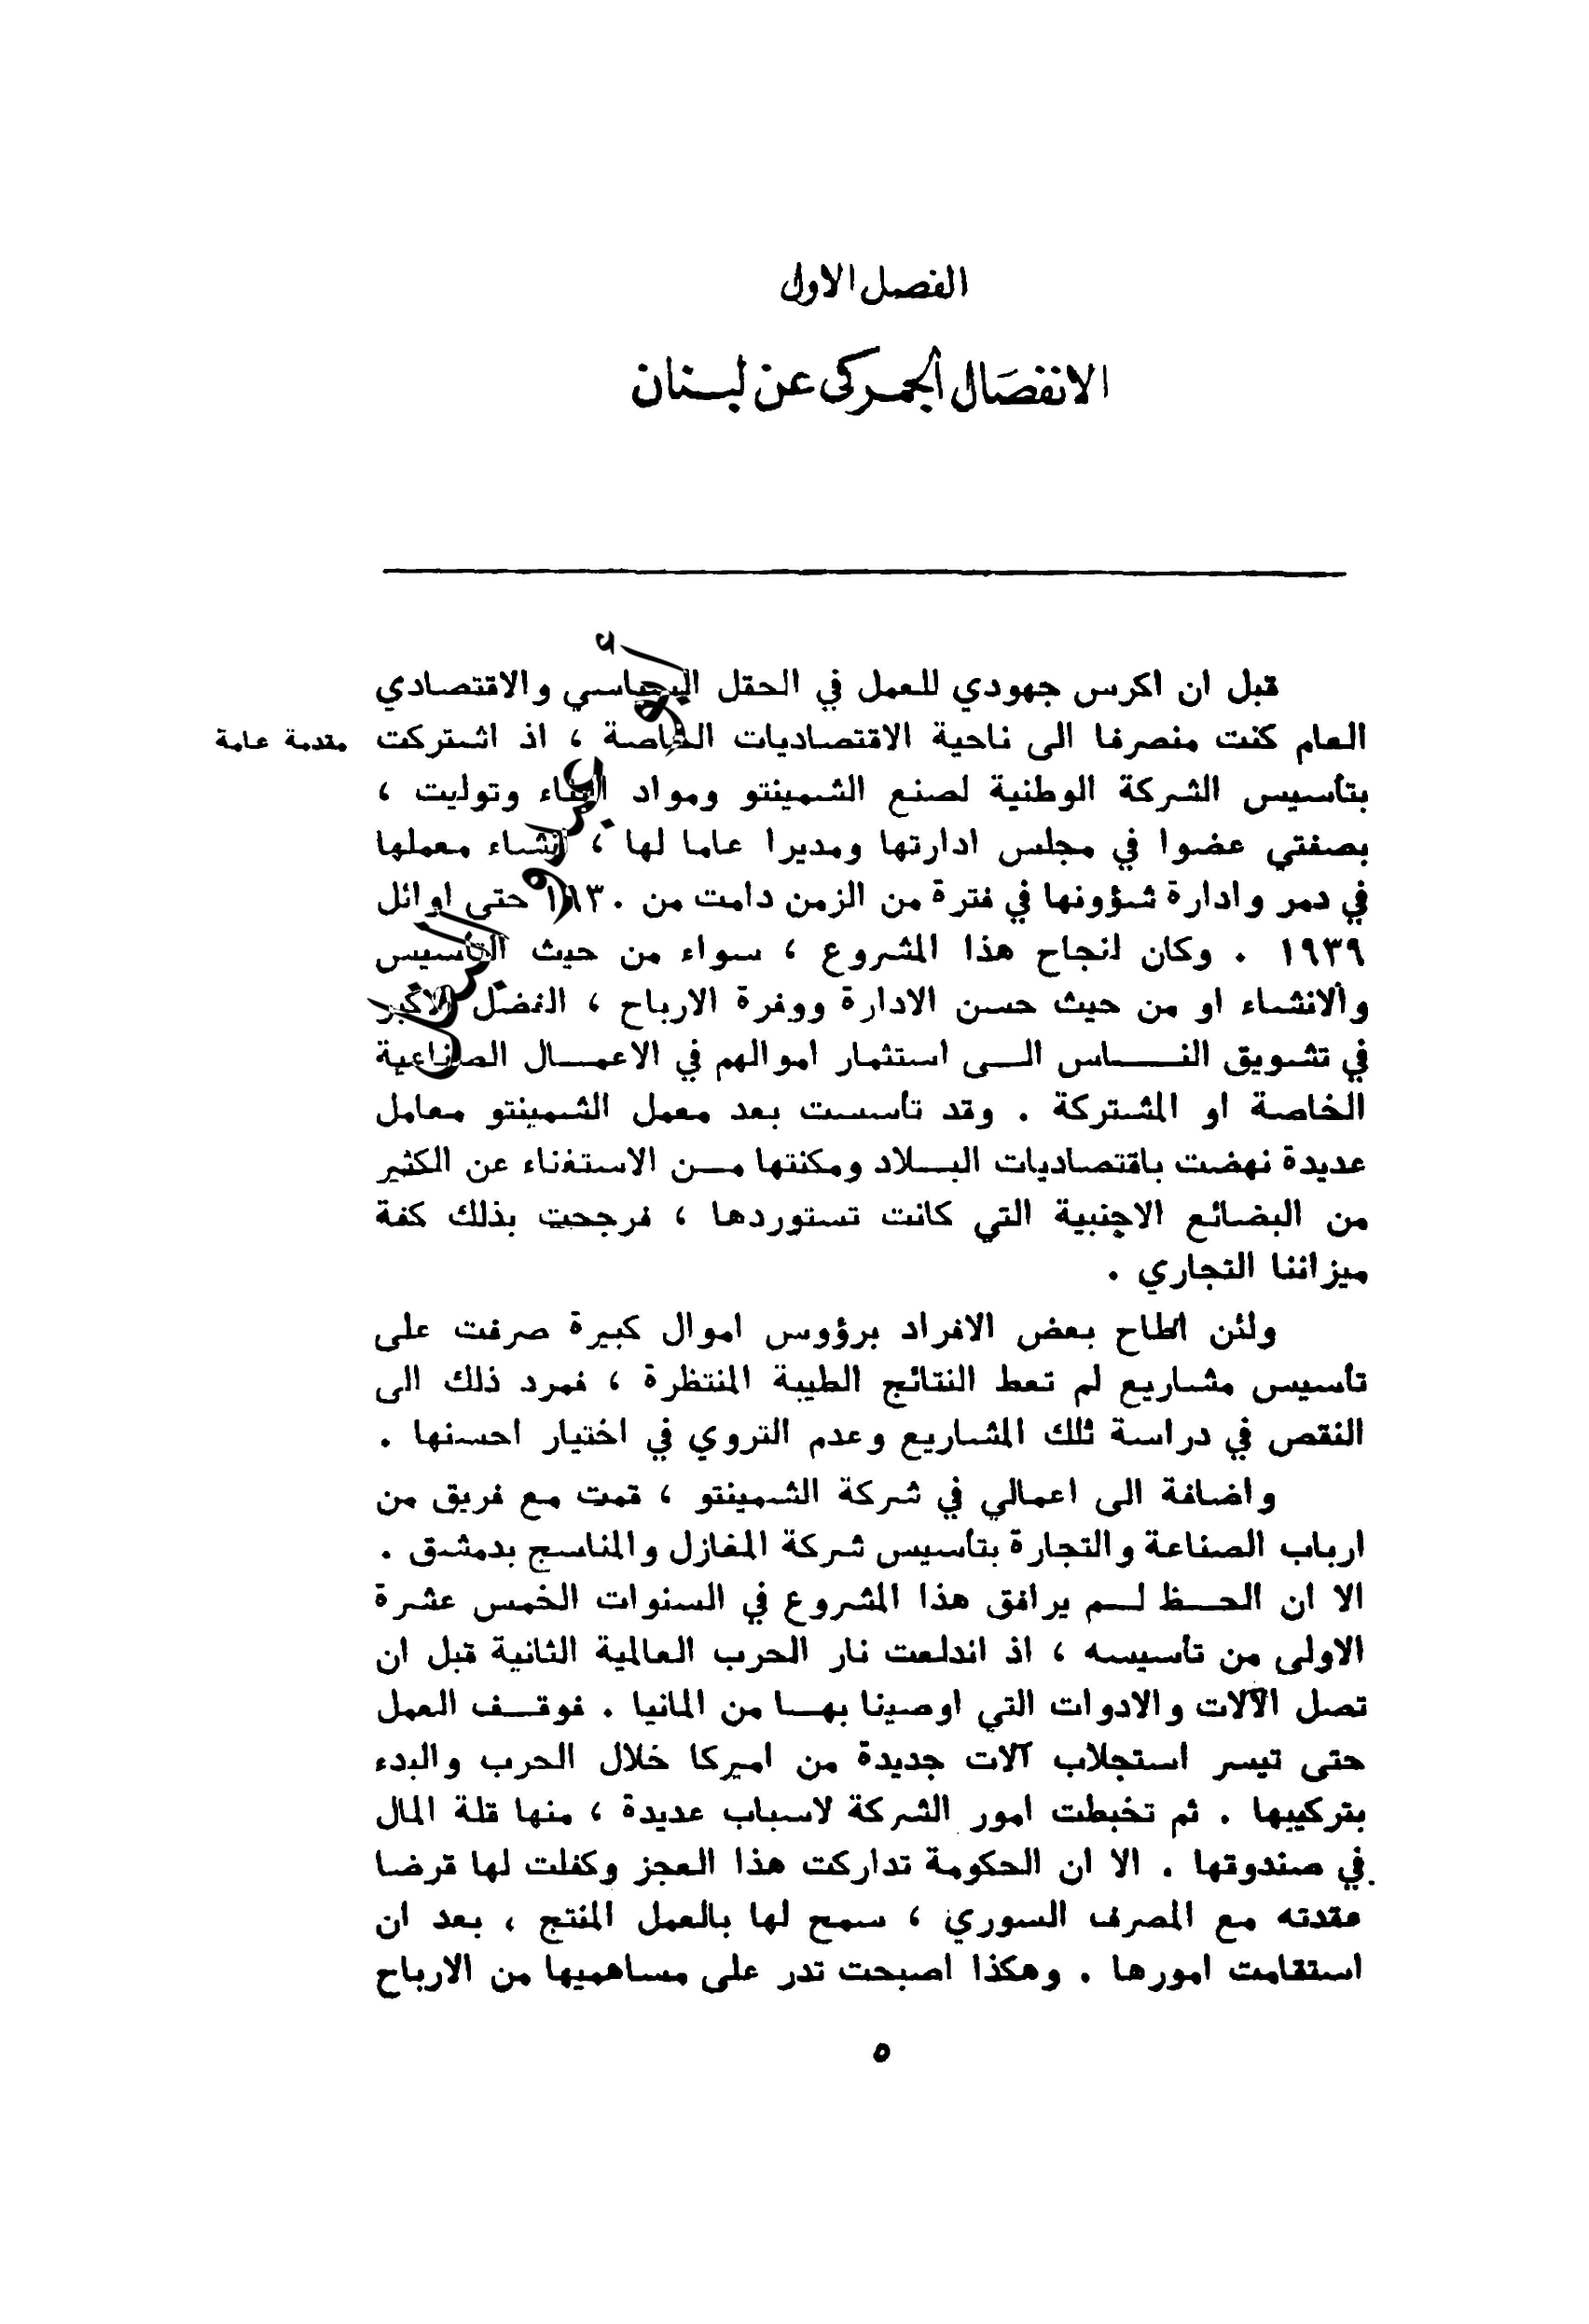 الفصل الاول
الانفصال الجمركي عن لبنان
قبل ان اكرس جهودي للعمل في الحقل السياسي والاقتصادي
العام كنت منصرفا الى ناحية الاقتصاديات الخاصة ، اذ اشتركت
مقدمة عامة
بتأسيس الشركة الوطنية لصنع الشمينتو ومواد البناء وتوليت ،
بصفتي عضوا في مجلس ادارتها ومديرا عاما لها ، انشاء معملها
في دمر وادارة شؤونها في فترة من الزمن دامت من ١٩٣٠ حتى اوائل
١٩٣٩ . وكان لنجاح هذا المشروع ، سواء من حيث التأسيس
والانشاء او من حيث حسن الادارة ووفرة الارباح ، الفضل الاكبر
في تشويق النـــاس الـى استثمار اموالهم في الاعمـال الصناعية
الخاصة او المشتركة . وقد تأسست بعد معمل الشمينتو معامل
عديدة نهضت باقتصاديات البـلاد ومكنتها مـن الاستغناء عن الكثير
من البضائع الاجنبية التي كانت تستوردها ، فرجحت بذلك كفة
ميزاننا التجاري .
ولئن اطاح بعض الافراد برؤوس اموال كبيرة صرفت على
تأسيس مشاريع لم تعط النتائج الطيبة المنتظرة ، فمرد ذلك الى
النقص في دراسة تلك المشاريع وعدم التروي في اختيار احسنها .
واضافة الى اعمالي في شركة الشمينتو ، قمت مع فريق من
ارباب الصناعة والتجارة بتأسيس شركة المغازل والمناسج بدمشق .
الا ان الحـظ لـم يرافق هذا المشروع في السنوات الخمس عشرة
الاولى من تأسيسه ، اذ اندلعت نار الحرب العالمية الثانية قبل ان
تصل الآلات والادوات التي اوصينا بهـا من المانيا . فوقـف العمل
حتى تيسر استجلاب آلات جديدة من اميركا خلال الحرب والبدء
بتركيبها . ثم تخبطت امور الشركة لاسباب عديدة ، منها قلة المال
في صندوقها . الا ان الحكومة تداركت هذا العجز وكفلت لها قرضا
عقدته مع المصرف السوري ، سمح لها بالعمل المنتج ، بعد ان
استقامت امورها . وهكذا اصبحت تدر على مساهميها من الارباح
٥